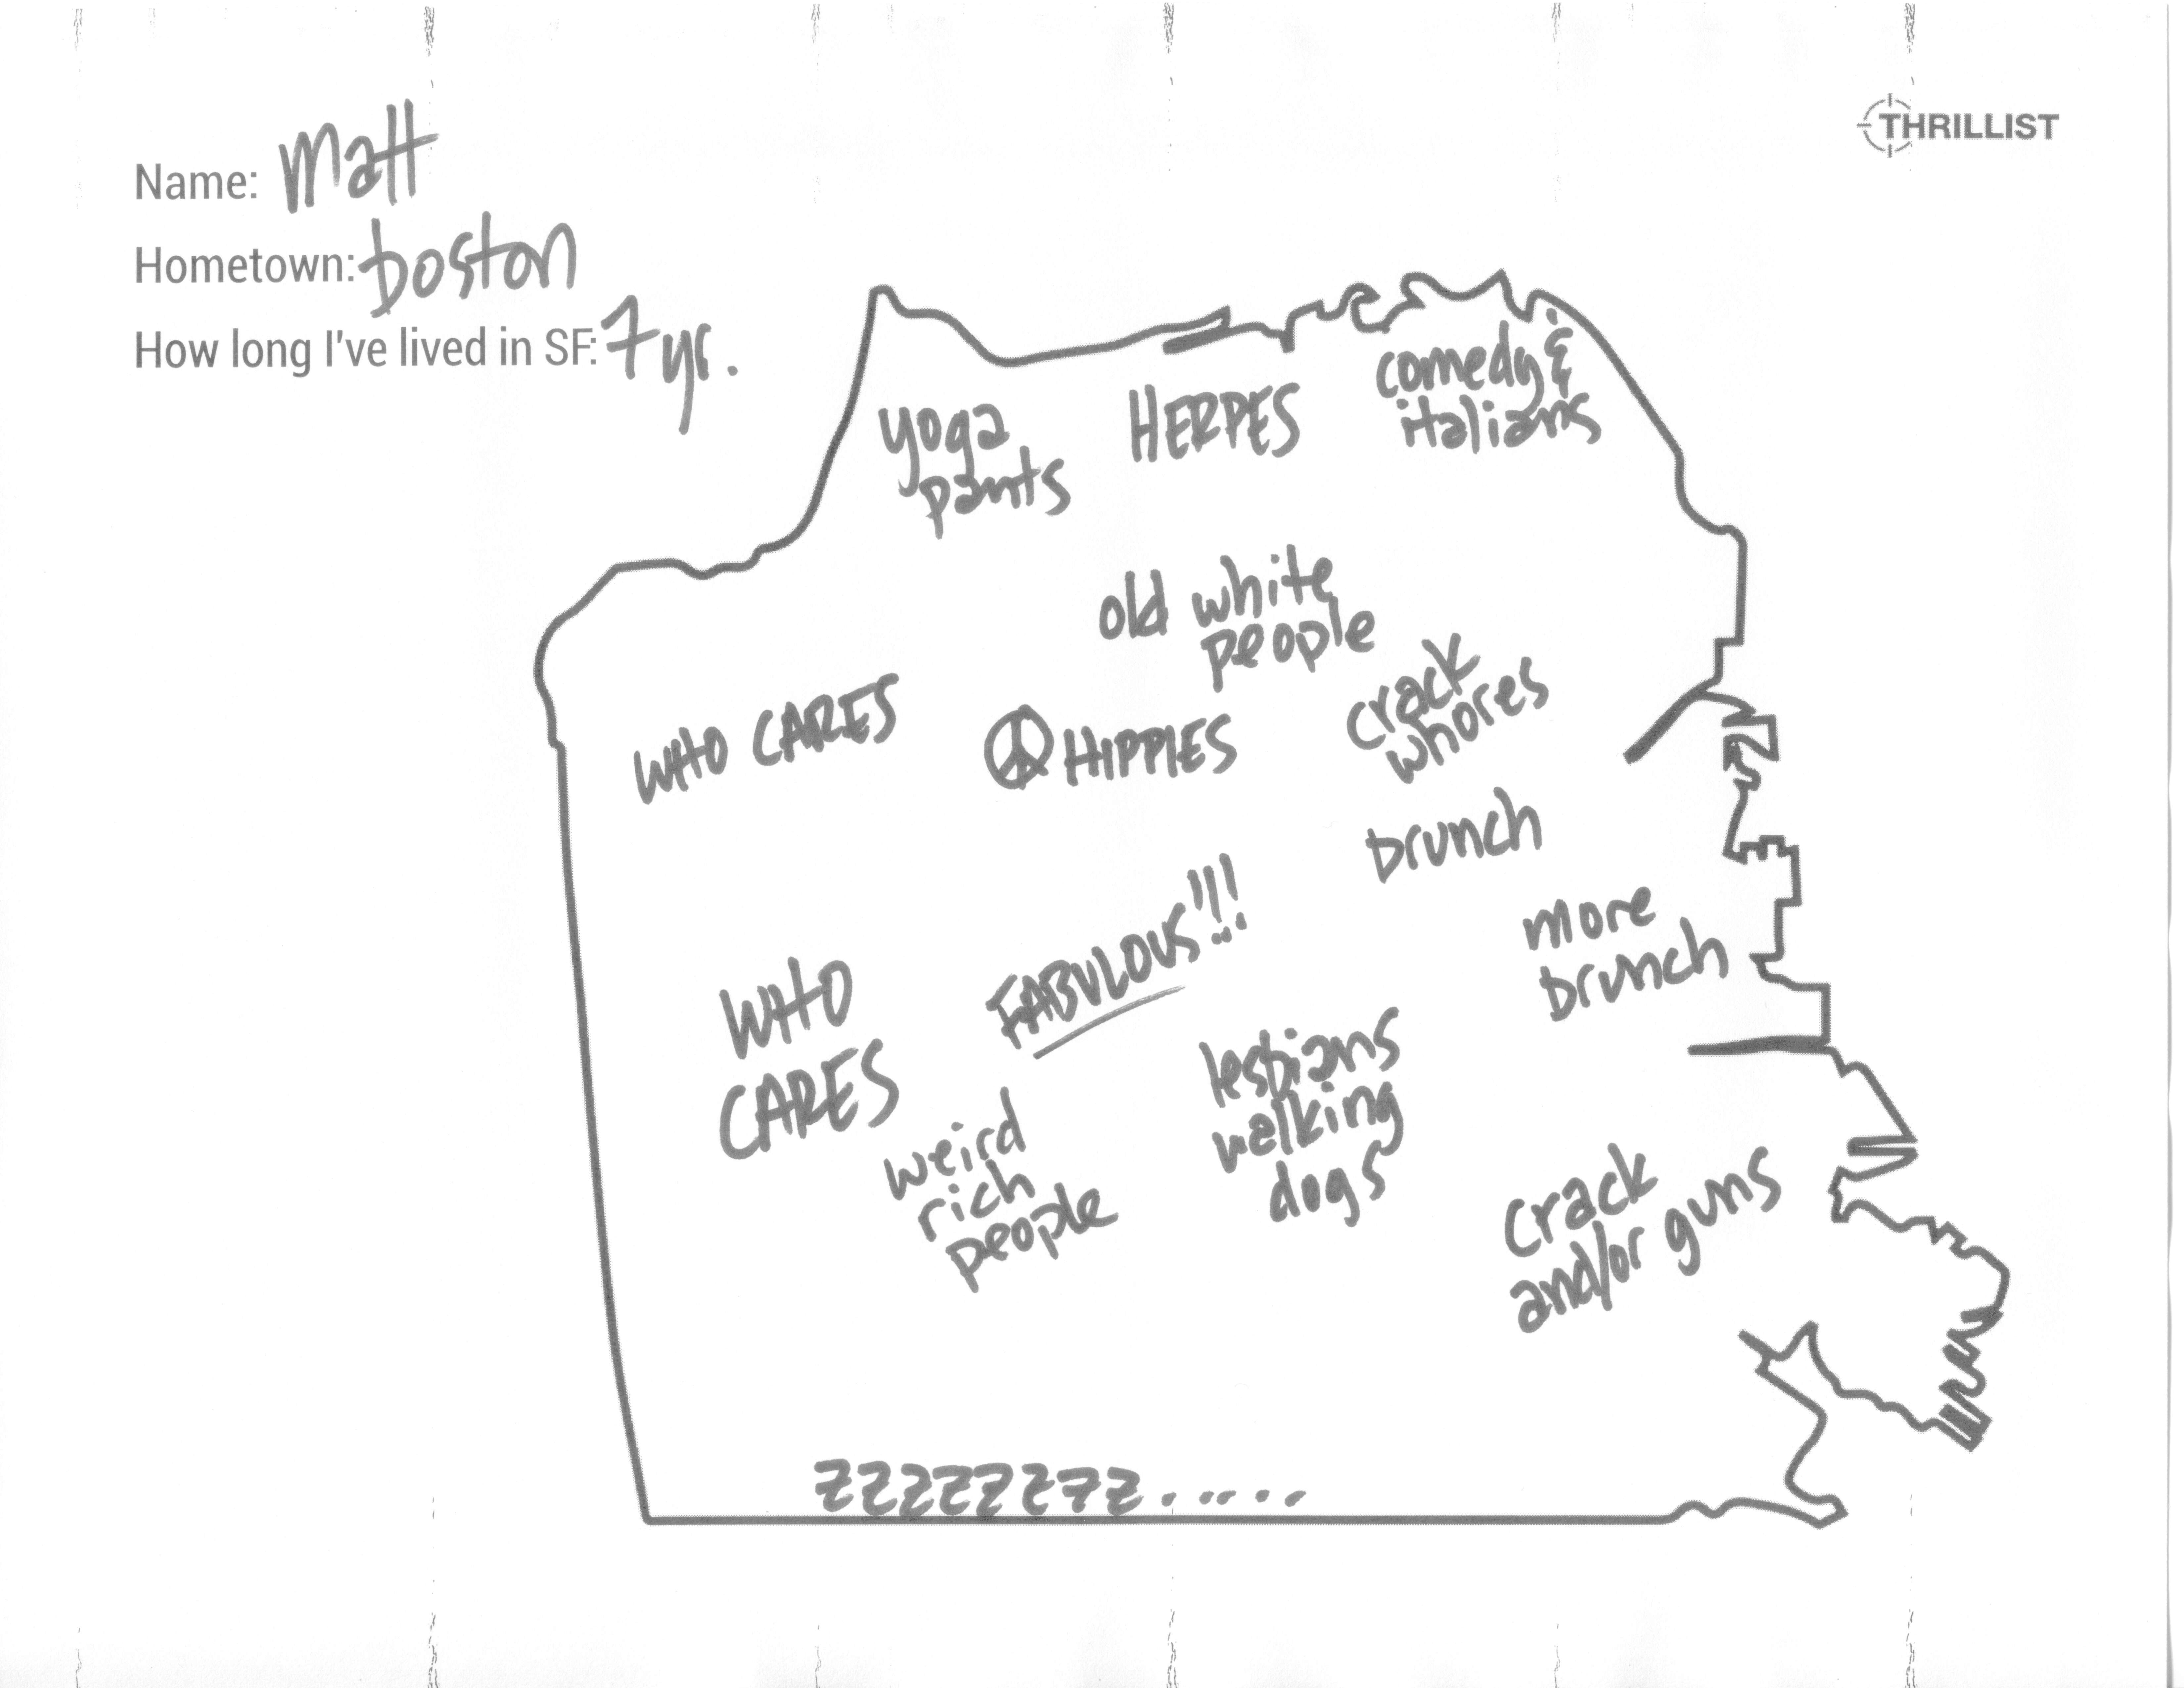 THRILLIST
Name: Matt
Hometown: boston
How long I've lived in SF: 7 yr.
yoga
pants
HERPES
comedy &
italians
old white
people
crack
whores
WHO CARES
HIPPIES
brunch
more
brunch
FABULOUS!!!
WHO
CARES
lesbians
walking
dogs
weird
rich
people
crack
and/or guns
ZZZZZZZZ......